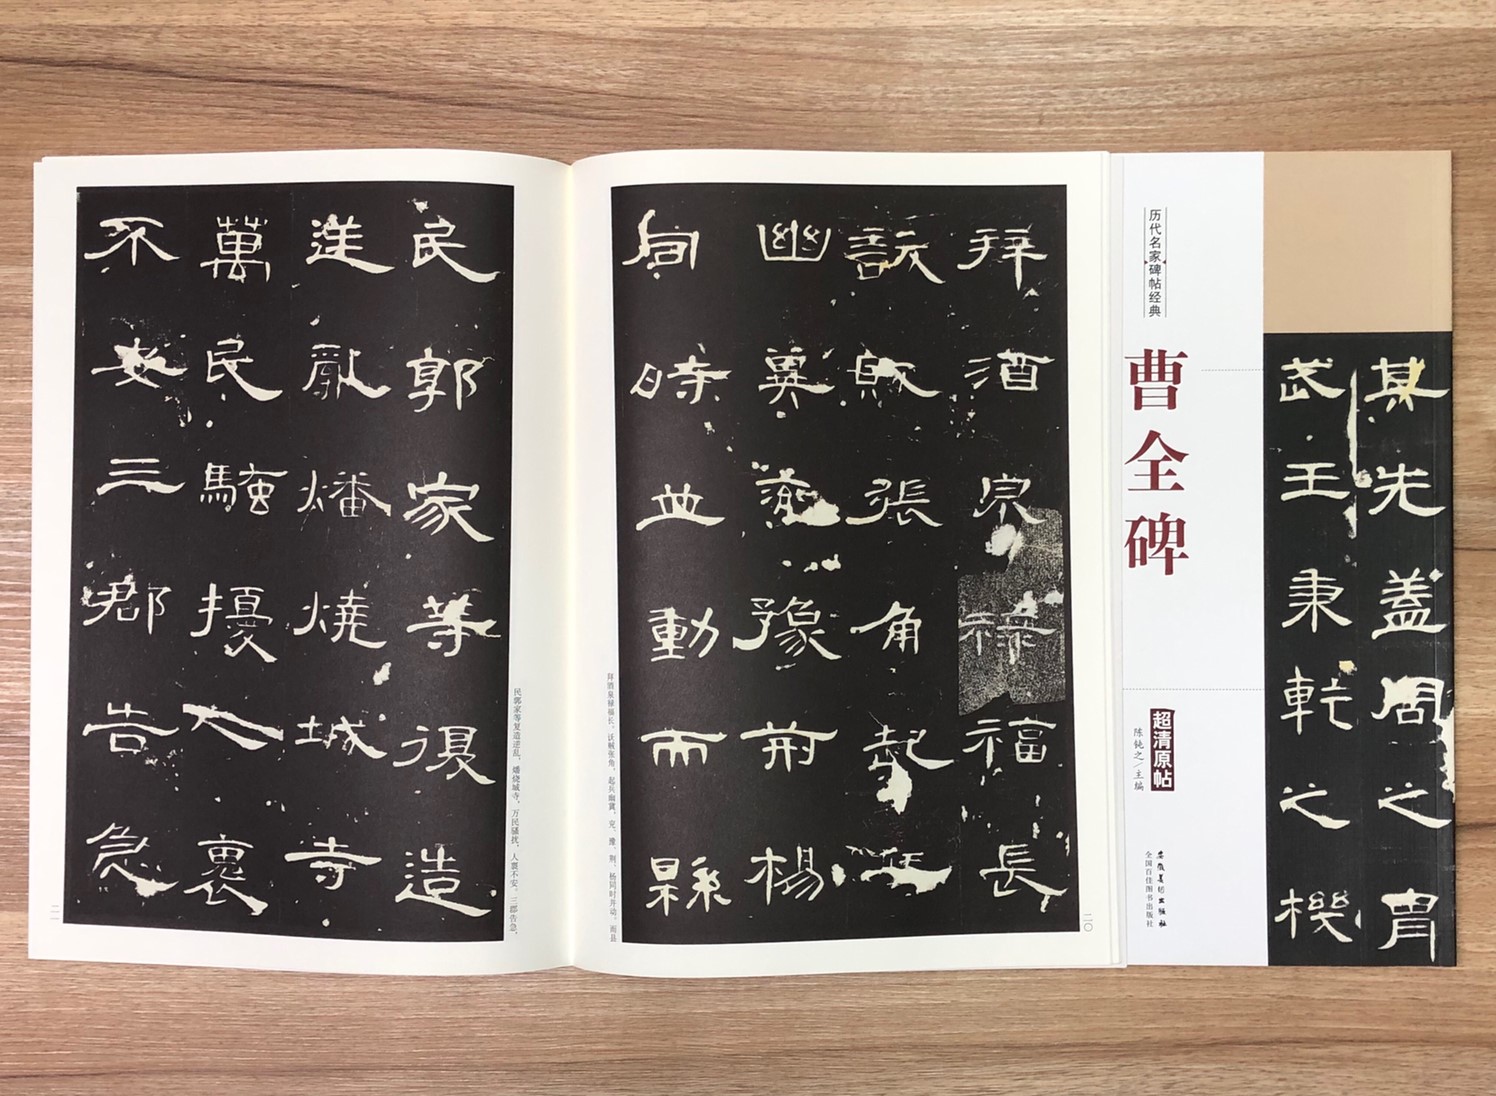 拜酒泉祿福長
訞賊張角起兵
幽冀兗豫荊楊
同時並動而縣
拜酒泉禄福长。訞贼张角，起兵幽冀，兖、豫、荆、杨同时并动。而县
二〇
民郭家等復造
逆亂燔燒城寺
萬民騷擾人褱
不安三郡告急
民郭家等复造逆乱，燔烧城寺，万民骚扰，人褱不安。三郡告急，
二一
其先蓋周之胄
武王秉乾之機
历代名家碑帖经典
曹全碑
超清原帖
陈钝之／主编
安徽美术出版社
全国百佳图书出版社